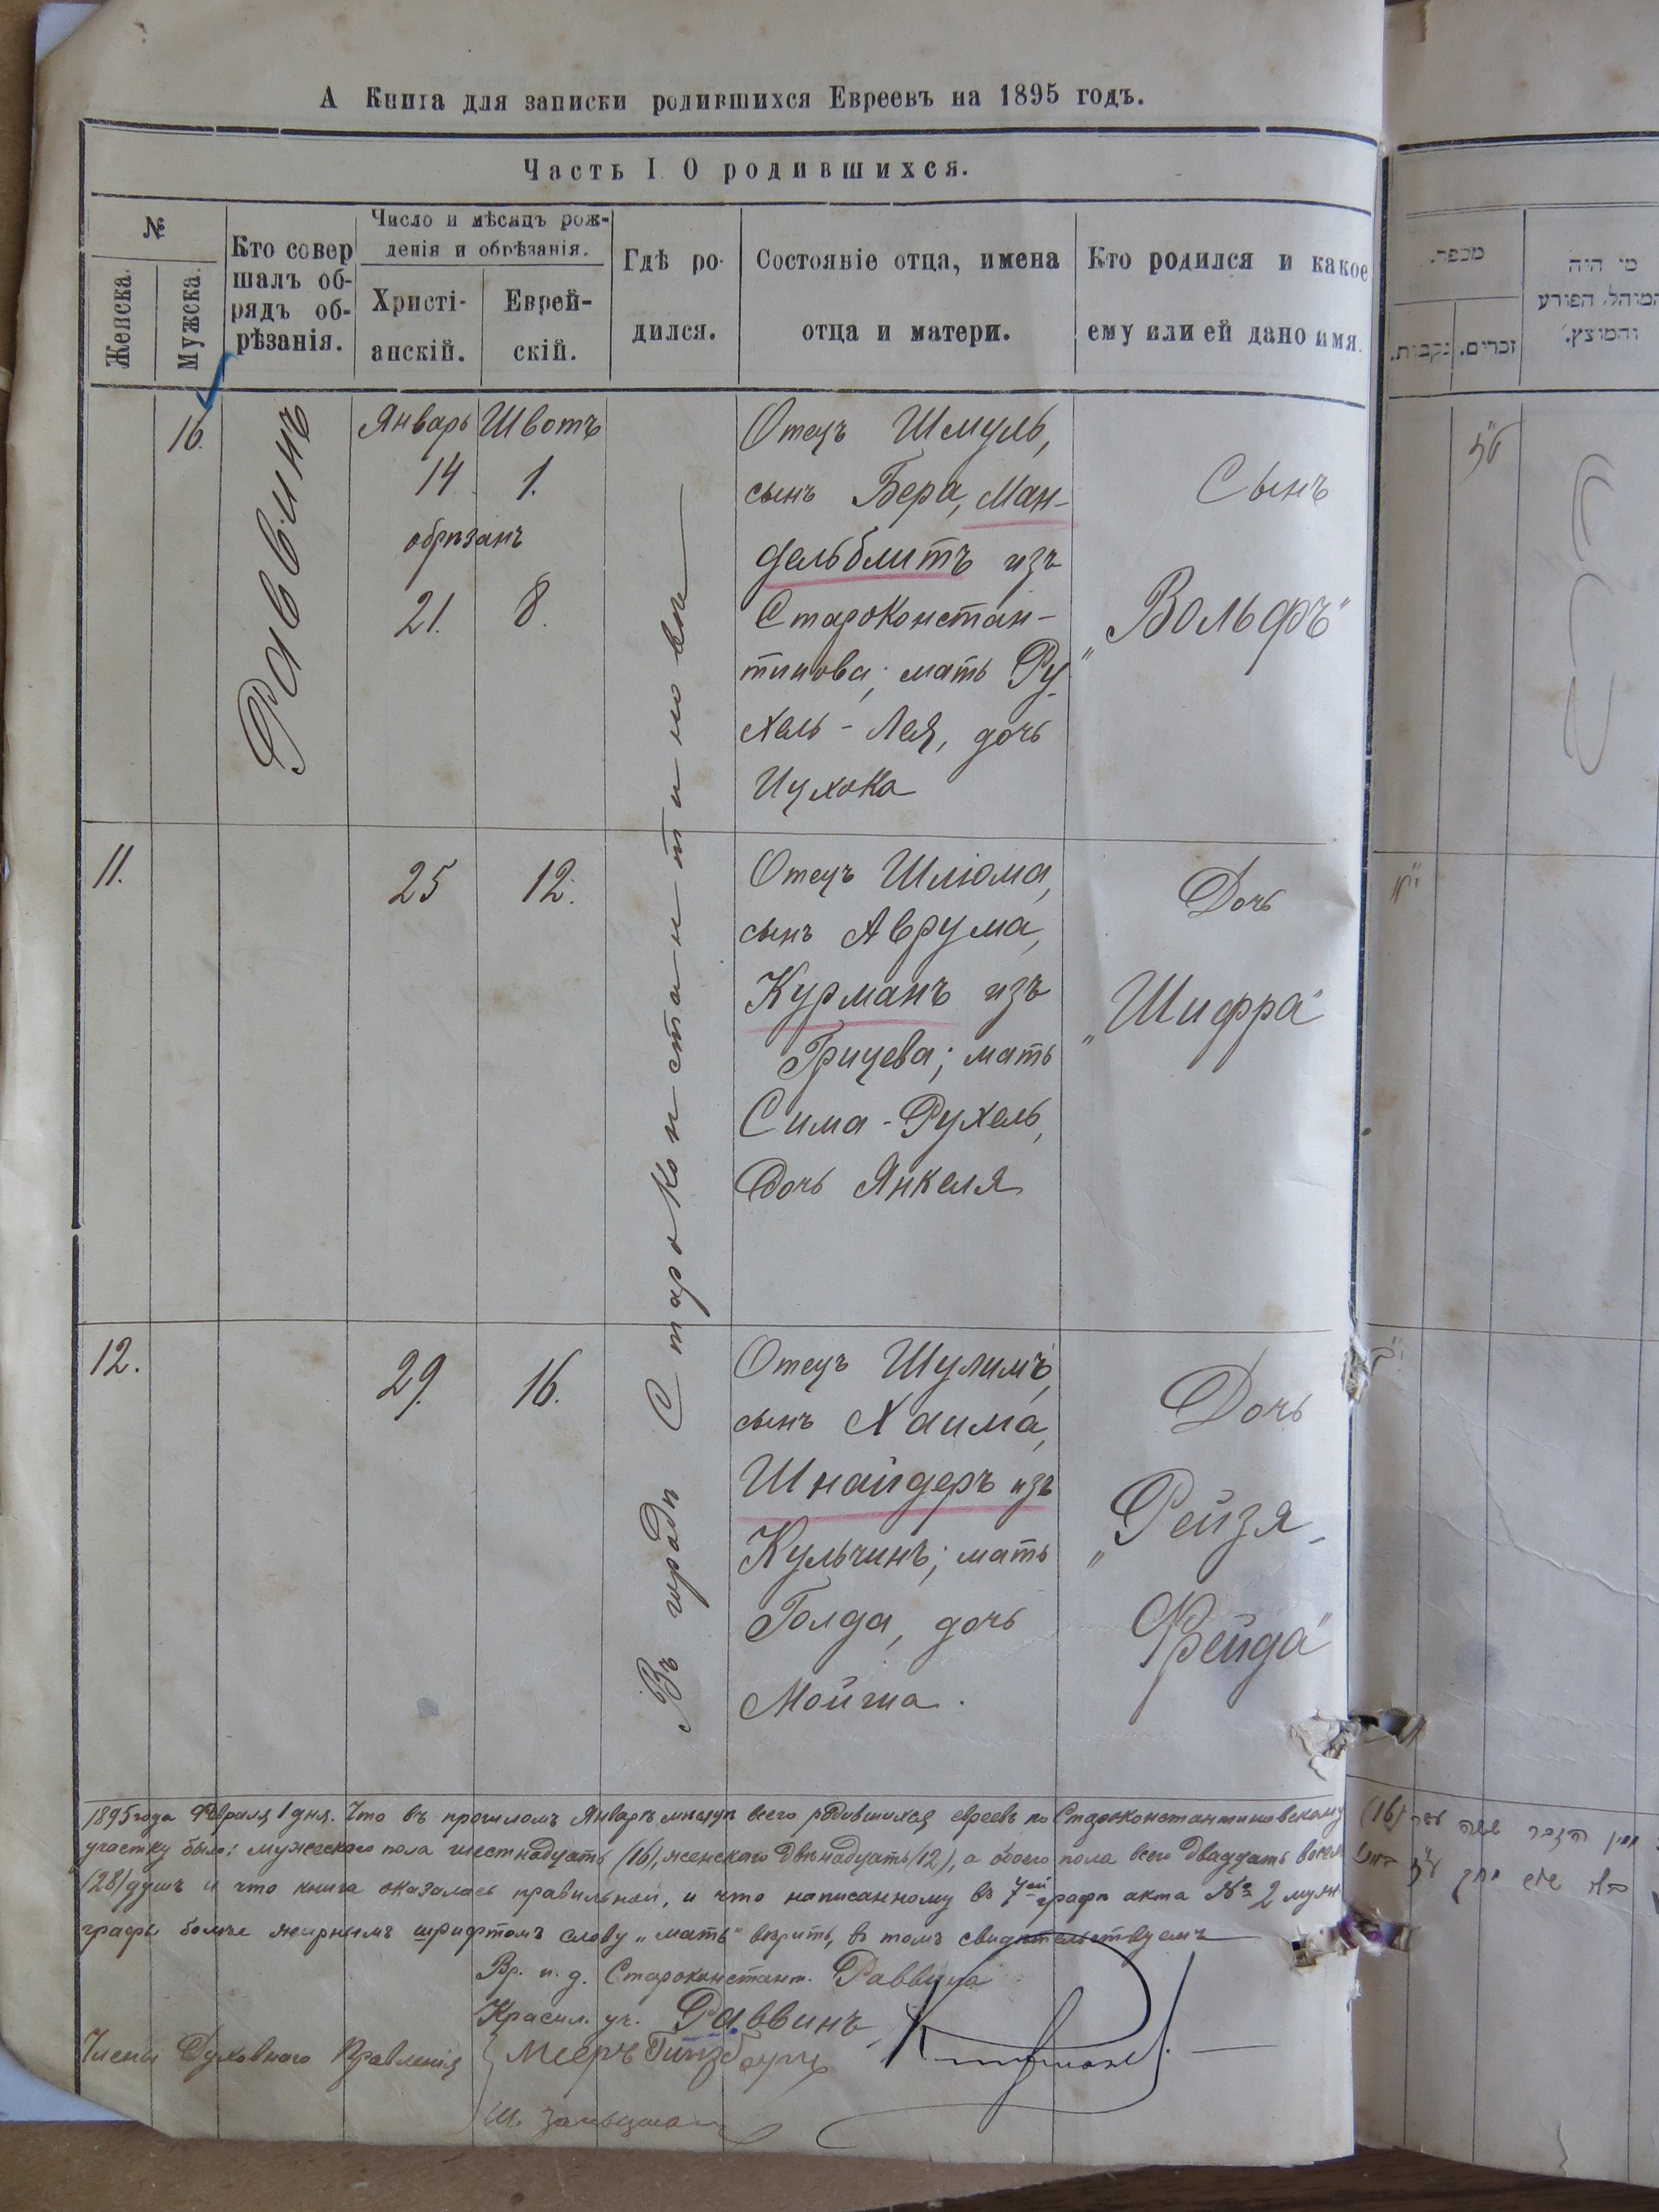 А Книга для записки родившихся Евреевъ на 1895 годъ.
Часть I О родившихся.
№
Женска.
Мужска.
Кто совер
шалъ об-
рядъ об-
рѣзанія.
Число и мѣсяцъ рож-
денія и обрѣзанія.
Христі-
анскій.
Еврей-
скій.
Гдѣ ро-
дился.
Состояніе отца, имена
отца и матери.
Кто родился и какое
ему или ей дано имя.
16.
Раввинъ
Январь
Швотъ
14
1.
обрѣзанъ
21.
8.
Въ городѣ Староконстантиновѣ
Отецъ Шмуль,
сынъ Бера, Ман-
дельблитъ изъ
Староконстан-
тинова; мать Ру-
хель-Лея, дочь
Ицхока
Сынъ
„Вольфъ"
11.
25
12.
Отецъ Шлюма,
сынъ Аврума,
Курманъ изъ
Грицева; мать
Сима-Рухель,
дочь Янкеля
Дочь
„Шифра"
12.
29.
16.
Отецъ Шулимъ,
сынъ Хаима,
Шнайдеръ изъ
Кульчинъ; мать
Голда, дочь
Мойша.
Дочь
„Рейзя-
Фрейда"
1895 года Февраля 1 дня. Что въ прошломъ Январѣ мѣсяцѣ всего родившихся евреевъ по Староконстантиновскому
участку было: мужескаго пола шестнадцать (16), женскаго двѣнадцать (12), а обоего пола всего двадцать восемь
(28) душъ и что книга оказалась правильной, и что написанному въ 7ой графѣ акта № 2 муж
графы болѣе жирнымъ шрифтомъ слову „мать" вѣрить, въ томъ свидѣтельствуемъ
Вр. и. д. Староконстант. Раввина
Красил. уч. Раввинъ
Члены Духовнаго Правленія
Мееръ Гинзбургъ
Ш. Зальцман
מספר.
נקבות.
זכרים.
מי היה
המוהל, הפורע
והמוצץ.
ט"ז
י"א
י"ב
(16)